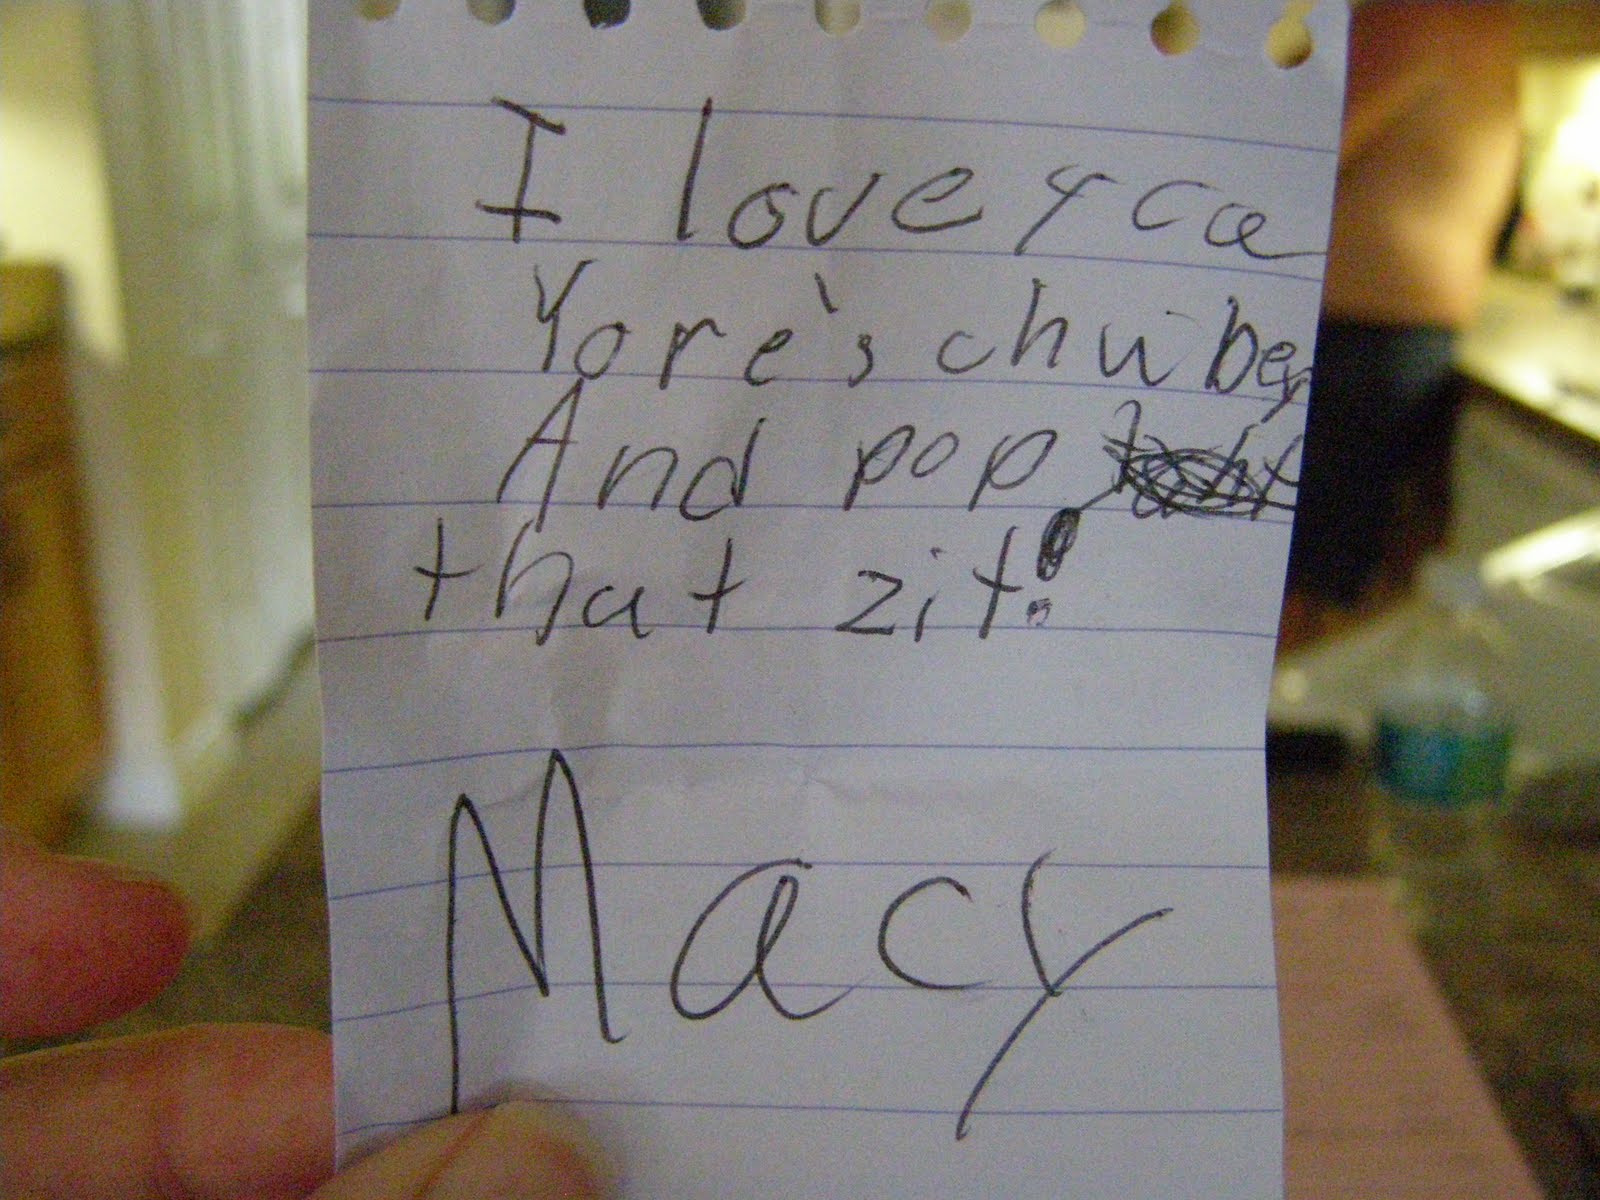 I love yca
Yore's chubey
And pop
that zit!
Macy